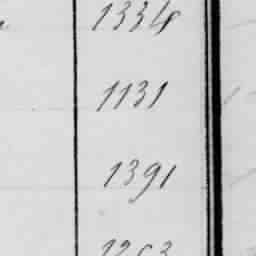 1334
1131
1391